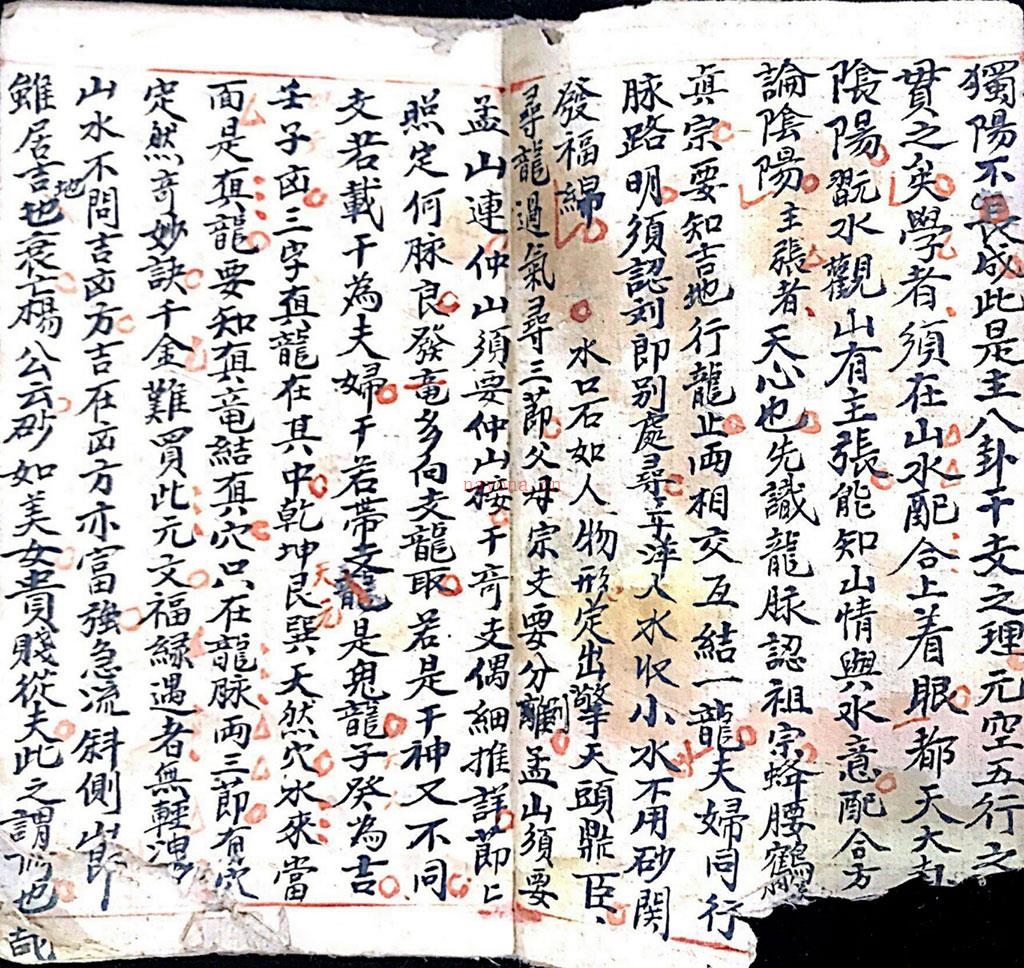 獨陽不長成此是主八卦干支之理元空五行之
貫之矣學者須在山水配合上着眼都天大卦
陰陽翫水觀山有主張能知山情與水意配合方
論陰陽主張者天心也先識龍脉認祖宗蜂腰鶴
真宗要知吉地行龍止兩相交互結一龍夫婦同行
脉路明須認刘郎别處尋平洋大水收小水不用砂関
發福綿 水口石如人物形定出擎天頭鼎臣
尋龍過氣尋三莭父母宗支要分離孟山須要
孟山連仲山須要仲山接干奇支偶細推詳莭
照定何脉良發竜多向支龍取若是干神又不同
支若載干為夫婦干若帶支龍是鬼龍子癸為吉
壬子凶三字真龍在其中乾坤艮巽天然穴水來當
天元
面是真龍要知真竜結真穴只在龍脉兩三莭有穴
定然奇妙訣千金難買此元文福緣遇者無輕洩
山水不問吉凶方吉在凶方亦富強急流斜側山莭
雖居吉地衰亡楊公云砂如美女貴賤從夫此之謂也
地